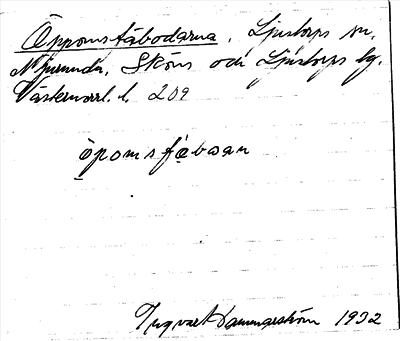 Öppomstäbodarna, Ljustorps sn,
Njurunda, Sköns och Ljustorps tg.
Västernorrl. l. 209
öpomsfäboan
Yngvar Hammarström 1932